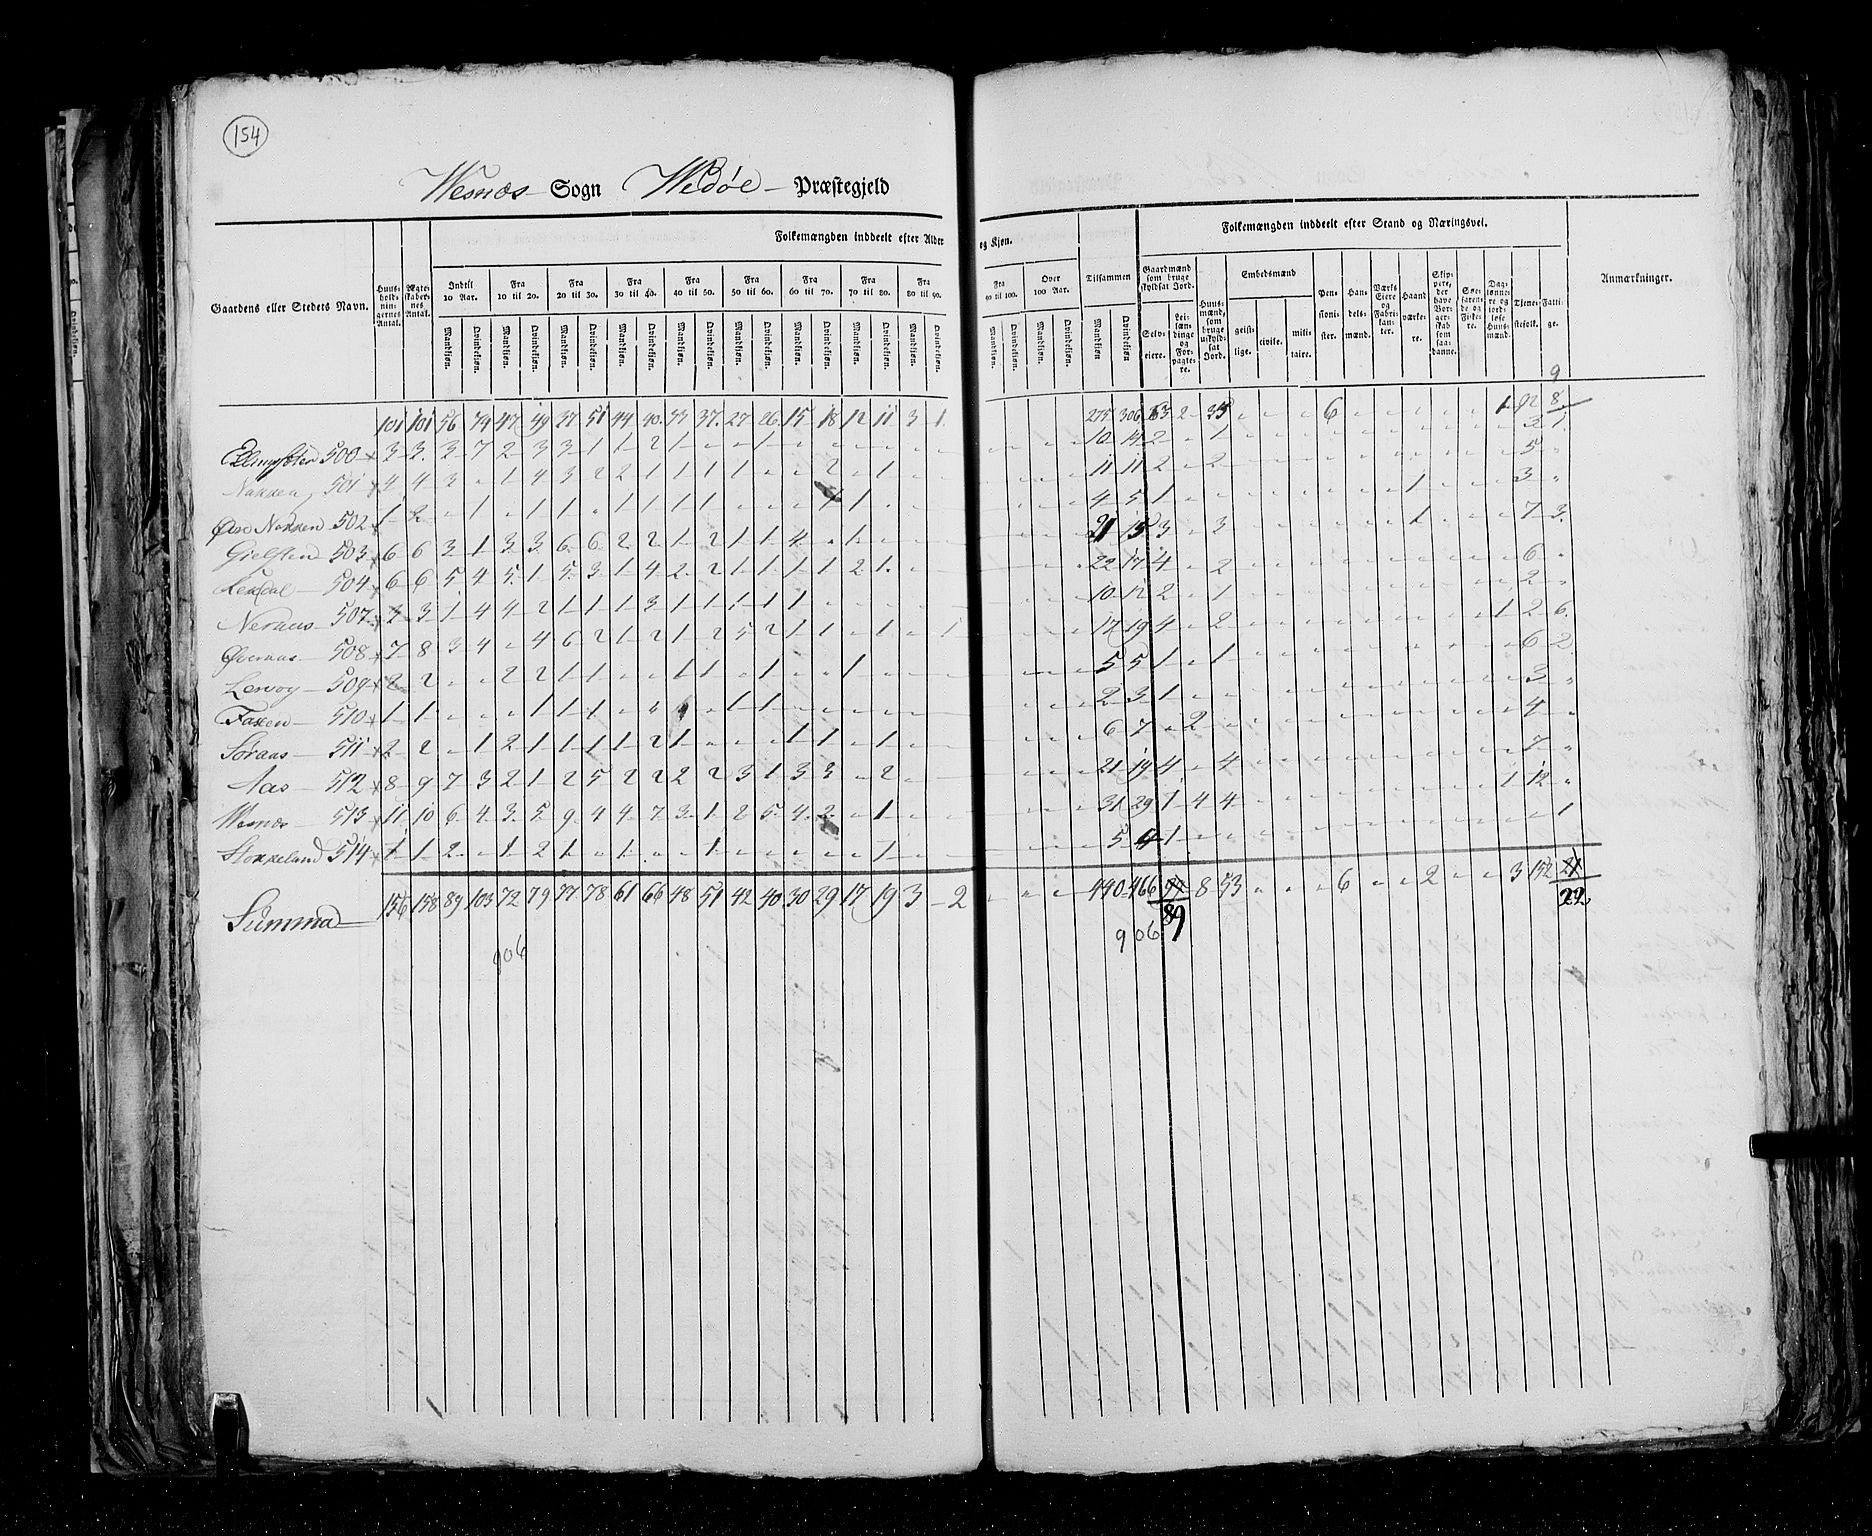 154
Wesnæs Sogn Wedøe Præstegjeld
Folkemængden inddeelt efter Alder og Kjøn.
Folkemængden inddeelt efter Stand og Næringsvei.
Gaardens eller Stedets Navn.
Huusholdningernes Antal.
Ægteskabernes Antal.
Indtil 10 Aar.
Fra 10 til 20.
Fra 20 til 30.
Fra 30 til 40.
Fra 40 til 50.
Fra 50 til 60.
Fra 60 til 70.
Fra 70 til 80.
Fra 80 til 90.
Fra 90 til 100.
Over 100 Aar.
Tilsammen
Mandkjøn. Qvindekjøn.
Gaardmænd som bruge skyldsat Jord.
Selveiere.
Leilændinge og Forpagtere.
Huusmænd, som bruge uskyldsat Jord.
Embedsmænd
geistlige. civile. militaire.
Pensionister.
Handelsmænd.
Værks Eiere og Fabrikanter.
Haandværkere.
Skippere, der have Borgerskab som saadanne.
Søefarende og Fiskere.
Dagslønnere og jordløse Huusmænd.
Tjenestefolk.
Fattige.
Anmærkninger.
9
101 101 56 79 47 49 37 51 44 40 33 37 27 26 15 18 12 11 3 1 275 306 63 2 35 6 1 92 8
500 3 3 3 7 2 3 3 1 1 2 1 1 10 14 2 1 3 1
Nakken 501 4 4 3 1 4 3 2 2 1 1 1 1 2 1 11 11 2 2 5
Øvre Nakken 502 1 2 1 1 1 1 1 1 1 4 5 1 1 3
Gielsten 503 6 6 3 1 3 3 6 6 2 2 1 2 1 1 4 1 21 15 3 3 1 7 3
504 6 6 5 4 5 1 5 3 1 4 2 2 1 1 1 1 2 1 22 17 4 2 6
Neraas 507 3 3 1 4 4 2 1 1 1 3 1 1 1 1 1 10 12 2 1 2
Øveraas 508 7 8 3 4 4 6 2 1 2 1 2 5 2 1 1 1 1 17 19 4 2 1 2 6
Lervog 509 2 2 2 2 1 1 1 1 1 1 5 5 1 1 6 2
Faxen 510 1 1 1 1 1 1 1 2 3 1 3
Søraas 511 2 2 1 2 1 1 1 1 2 1 1 1 1 6 7 2 4
Aas 512 8 9 7 3 2 1 2 5 2 2 2 2 3 1 3 3 2 21 19 4 4 7
Wesnæs 513 11 10 6 4 3 5 9 4 4 7 3 1 2 5 4 2 1 31 29 1 4 4 1 12
Stokkeland 514 1 1 2 1 2 1 1 1 1 5 4 1 1
Summa 156 158 89 103 72 79 77 78 61 66 48 51 42 40 30 29 17 19 3 2 440 466 8 53 6 2 3 152 21
89
22
906
906